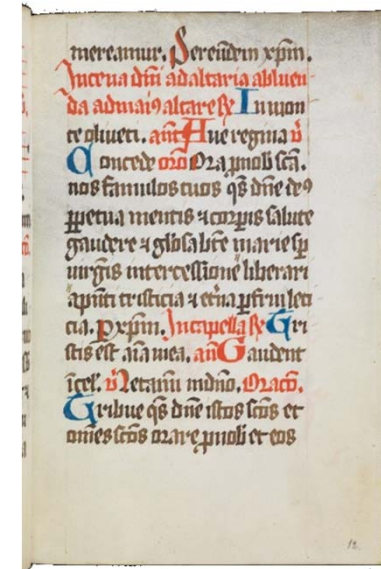 mereamur. Per eundem xpm.
In cena dni ad altaria abluen
da ad maiꝰ altare ℟ In mon
te oliveti. ant Ave regina v̄
Concede oro Ora p nob scā.
nos famulos tuos qs dne deꝰ
ppetua mentis ⁊ corpis salute
gaudere ⁊ glosa bte marie sp
virginis intercessione liberari
a pnti tristicia ⁊ etna pfrui leti
cia. P xpm. In capella ℟ Tri
stis est aīa mea. an Gaudent
ī cel. v̄ Letamī ī dno. Oracō.
Tribue qs dne istos scōs et
omēs scōs orare p nob et eos
12.